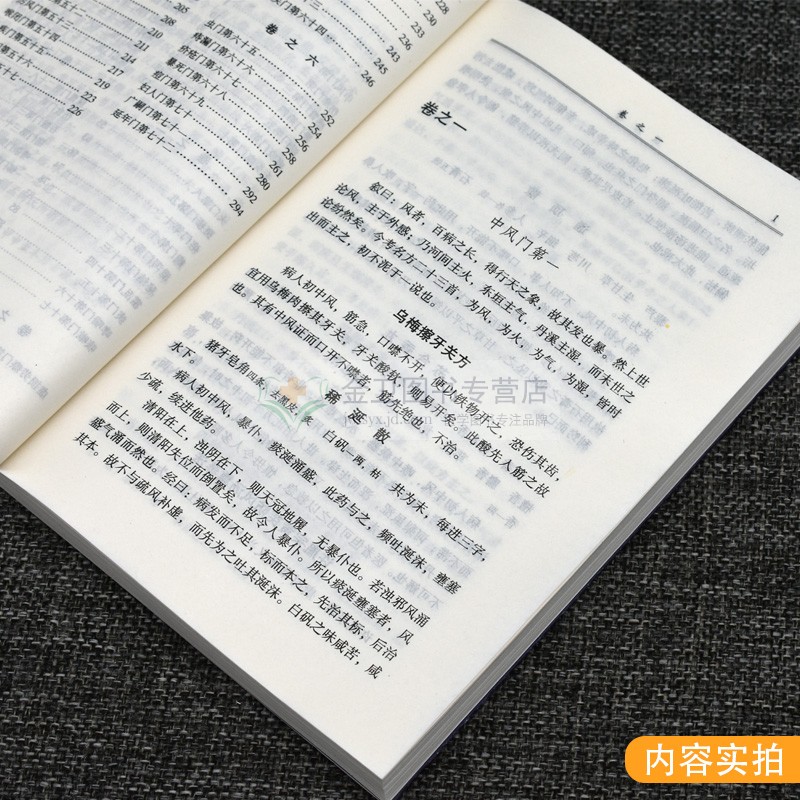 206
208
209
210
211
214
217
219
223
226
卷之六
虫门第六十五
疥疮门第六十七
暴死门第六十八
妇人门第七十
广嗣门第七十一
延年门第七十二
236
243
245
246
252
254
256
258
261
280
292
294
卷之一
1
卷之一
中风门第一
叙曰:风者,百病之长,得行天之象,故其发也暴。然上世
论风,主于外感;乃河间主火,东垣主气,丹溪主湿,而末世之
论纷然矣。今考名方二十三首,为风,为火,为气,为湿,皆时
出而主之,初不泥于一说也。
乌梅擦牙关方
病人初中风,筋急,口噤不开,便以铁物开之,恐伤其齿,
宜用乌梅肉擦其牙关,牙关酸软,则易开矣。此酸先入筋之故
也。其有中风证而口开不噤者,筋先绝也,不治。
稀涎散
猪牙皂角四条,去黑皮 白矾一两,枯 共为末,每进三字,
水下。
病人初中风,暴仆,痰涎涌盛,此药与之,频吐涎沫,壅塞
少疏,续进他药。
清阳在上,浊阴在下,则天冠地履,无暴仆也。若浊邪风涌
而上,则清阳失位而倒置矣,故令人暴仆。所以痰涎壅塞者,风
盛气涌而然也。经曰:病发而不足,标而本之,先治其标,后治
其本。故不与疏风补虚,而先为之吐其涎沫。白矾之味咸苦,咸
金卫图书专营店
内容实拍